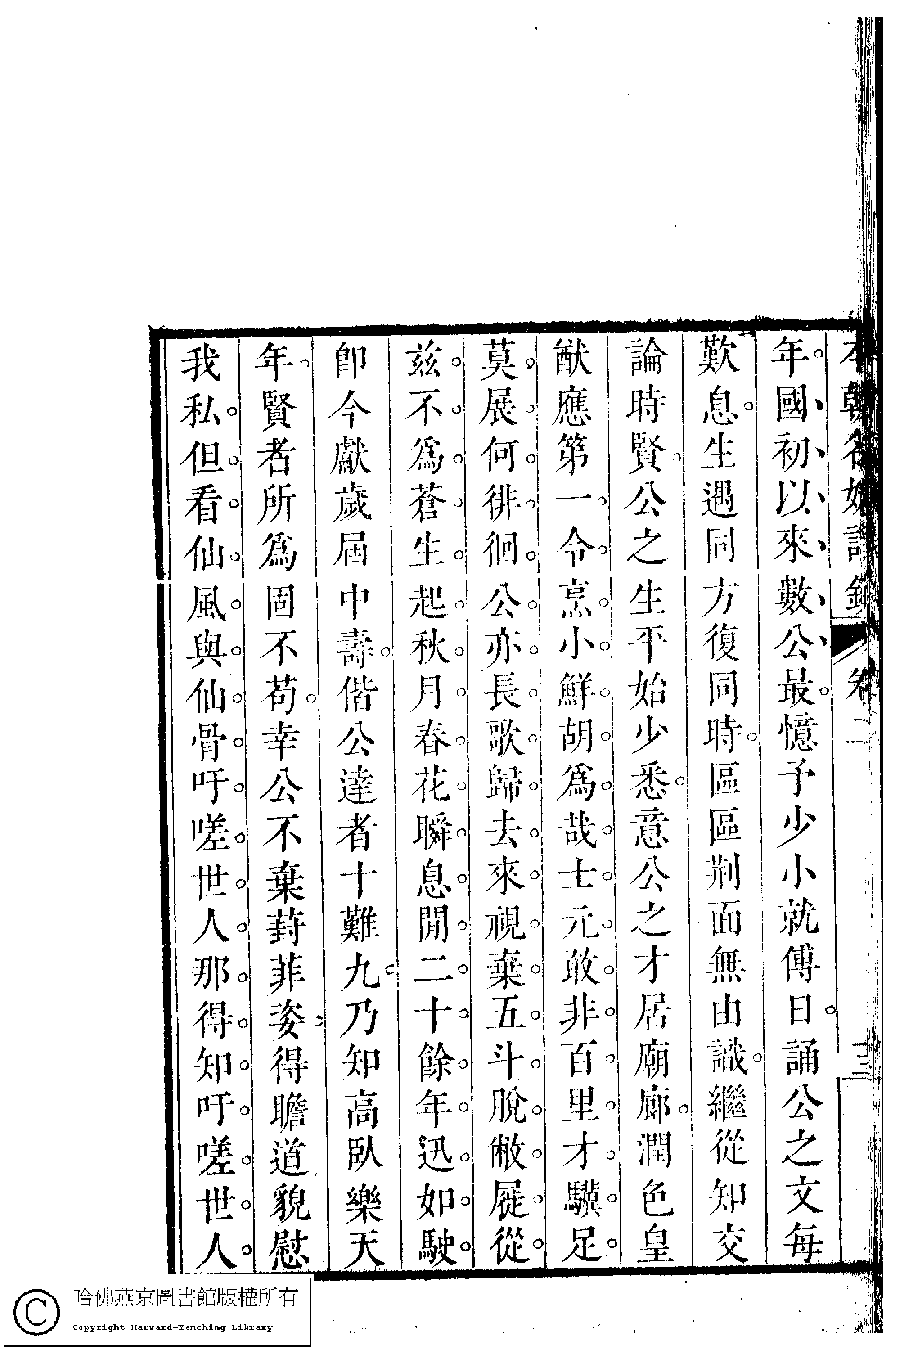 本朝名媛詩鈔 卷二 十三
年國初以來數公最憶予少小就傅日誦公之文每
歎息生遇同方復同時區區荆面無由識繼從知交
論時賢公之生平始少悉意公之才居廟廊潤色皇
猷應第一令烹小鮮胡爲哉士元敢非百里才驥足
莫展何徘徊公亦長歌歸去來視棄五斗脫敝屣從
兹不爲蒼生起秋月春花瞬息間二十餘年迅如駛
卽今獻歲屆中壽偕公達者十難九乃知高臥樂天
年賢者所爲固不苟幸公不棄葑菲姿得瞻道貌慰
我私但看仙風與仙骨吁嗟世人那得知吁嗟世人
哈佛燕京圖書館版權所有
Copyright Harvard-Yenching Library